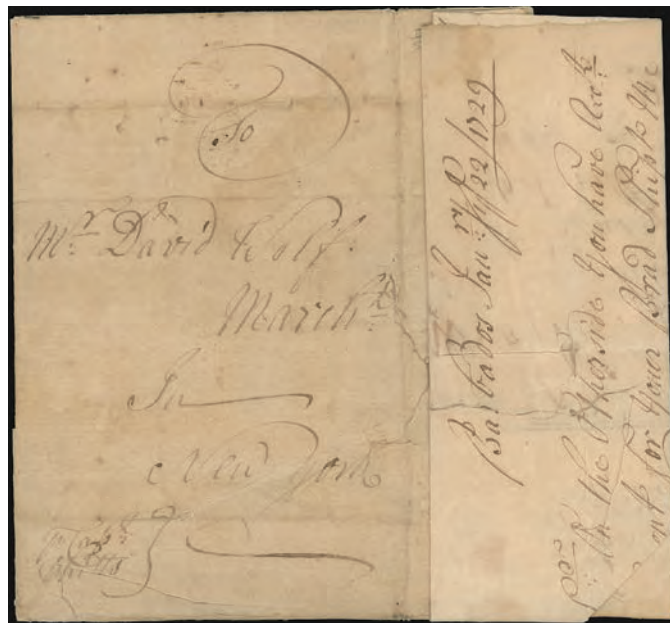 To
Mr. David Wolf
March.t
In
New York
Barbados Jan:ry ye 22/1729
Sr: On the Otherside you have Acc.t
for your Bread Ship't